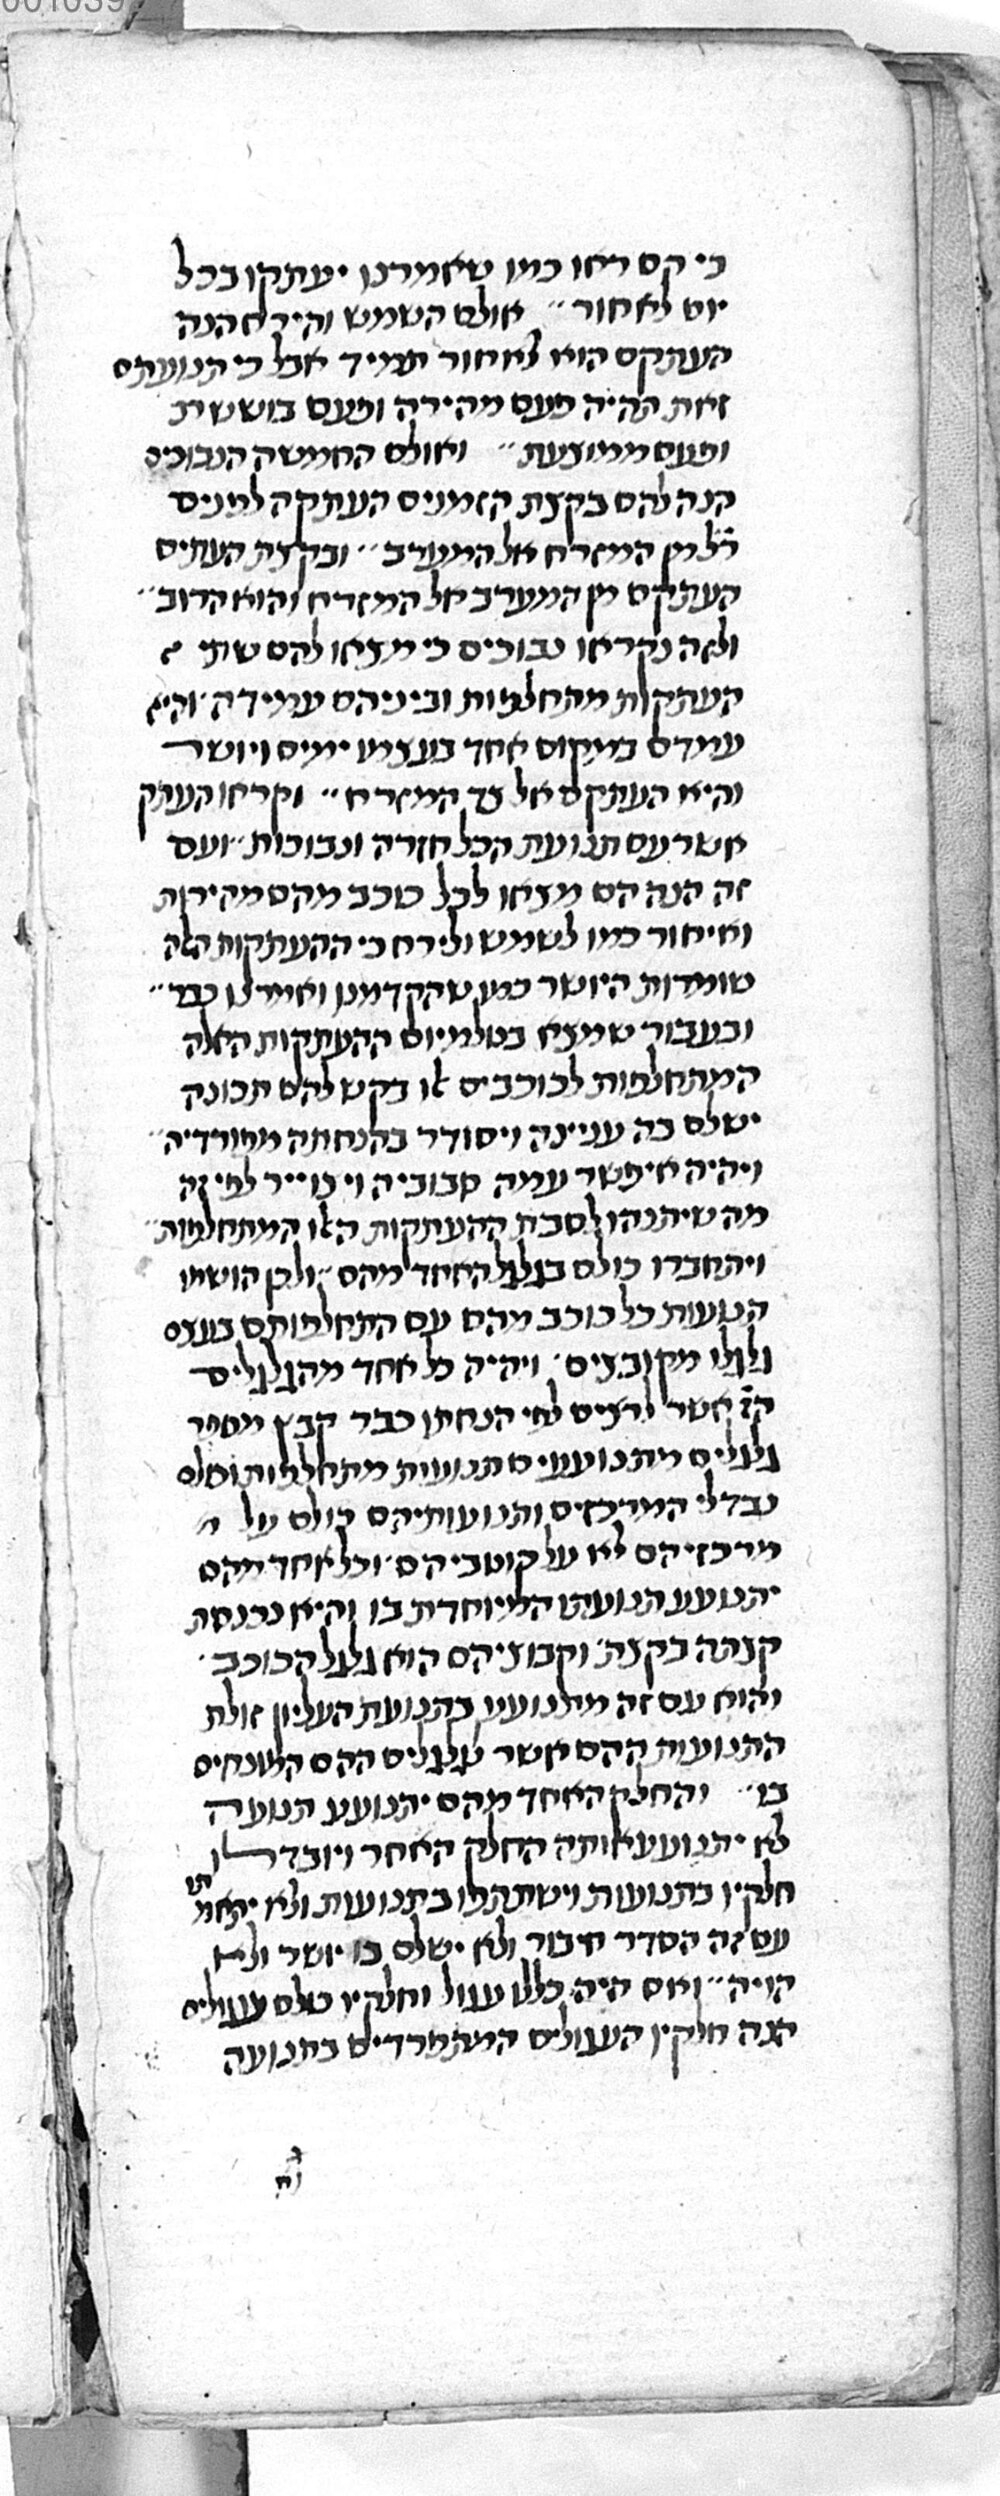 001039
כי הם ראו כמו שאמרנו יעתקו בכל
יום לאחור״ אולם השמש והירח הנה
העתקם הוא לאחור תמיד אבל כי תנועתם
זאת תהיה פעם מהירה ופעם בוששית
ופעם ממוצעת״ ואולם החמשה הנבוכים
הנה להם בקצת הזמנים העתקה לפנים
ר״ל מן המזרח אל המערב״ ובקצת העתים
העתקם מן המערב אל המזרח והוא הרוב״
ולזה נקראו נבוכים כי מצאו להם שתי
העתקות מתחלפות וביניהם עמידה׳ והיא
עמדם במקום אחד בעצמו ימים ויושר
והיא העתקם אל צד המזרח״ וקראו העתק
אשר עם תנועת הכל חזרה ונבוכות״ ועם
זה הנה הם מצאו לכל כוכב מהם מהירות
ואיחור כמו לשמש ולירח כי ההעתקות האלה
שומרות היושר כמו שהקדמנו ואמרנו כבר״
ובעבור שמצא בטלמיוס ההעתקות האלה
המתחלפות לכוכבים אז בקש להם תכונה
ישלם בה עניינה ויסודר בהנחתה מסורדיה״
ויהיה איפשר עמה סבוביה ויצוייר לפי זה
מה שיתנהו לסבת ההעתקות האלו המתחלפות״
ויתחברו כולם בגלגל האחד מהם״ ולכן הושמו
תנועות כל כוכב מהם עם התחלפותם בעצם
גלגלו מקובצים׳ ויהיה כל אחד מהגלגלים
הז׳ אשר לרצים לפי הנחתו כבר קבץ מספר
גלגלים מתנועעים תנועות מתחלפות וכולם
נבדלי המרכזים ותנועותיהם כולם על
מרכזיהם לא על קוטביהם׳ וכל אחד מהם
יתנועע תנועתו המיוחדת בו והיא נכנסת
קצתה בקצת׳ וקבוציהם הוא גלגל הכוכב׳
והוא עם זה מתנועע בתנועת העליון זולת
התנועות ההם אשר לגלגלים ההם המונחים
בו״ והחלק האחד מהם יתנועע תנועה
לא יתנועע אותה החלק האחר ויובדלו
חלקיו בתנועות וישתתפו בתנועות ולא יתאמתו
עם זה הסדר חיבור ולא ישלם בו יושר ולא
הויה״ ואם היה כללו עגול וחלקיו כולם עגולים
הנה חלקיו העגולים המתפרדים בתנועה